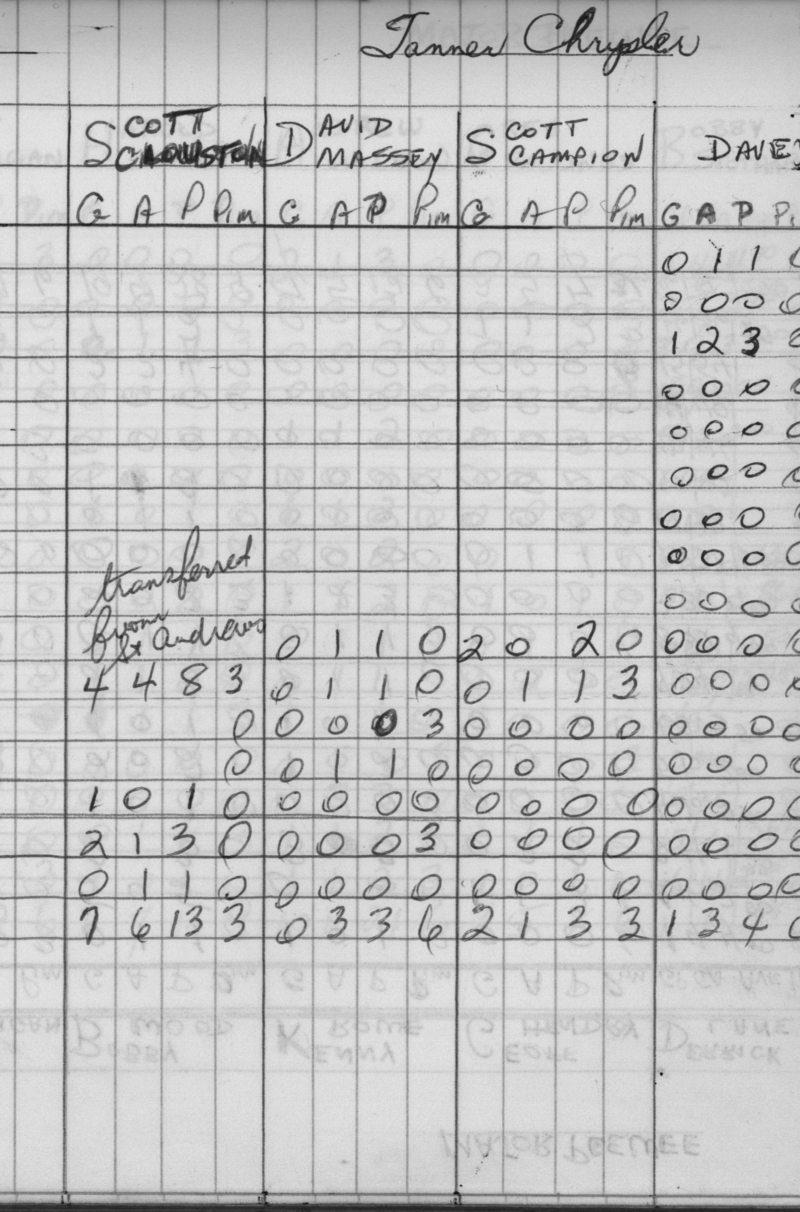 Tanner Chrysler
SCOTT CLOUSTON DAVID MASSEY SCOTT CAMPION DAVE
G A P Pim G A P Pim G A P Pim G A P Pi
0 1 1 0
0 0 0 0
1 2 3 0
0 0 0 0
0 0 0 0
0 0 0 0
0 0 0 0
0 0 0 0
transferred 0 0 0 0
from St Andrews 0 1 1 0 2 0 2 0 0 0 0 0
4 4 8 3 0 1 1 0 0 1 1 3 0 0 0 0
0 0 0 0 3 0 0 0 0 0 0 0 0
0 0 1 1 0 0 0 0 0 0 0 0 0
1 0 1 0 0 0 0 0 0 0 0 0 0 0 0 0
2 1 3 0 0 0 0 3 0 0 0 0 0 0 0 0
0 1 1 0 0 0 0 0 0 0 0 0 0 0 0 0
7 6 13 3 0 3 3 6 2 1 3 3 1 3 4 0
G A P Pim G A P Pim G A P Pim
BOBBY WOOD KENNY ROWE GEOFF HENDRY DERRICK LANE
MAJOR PEEWEE